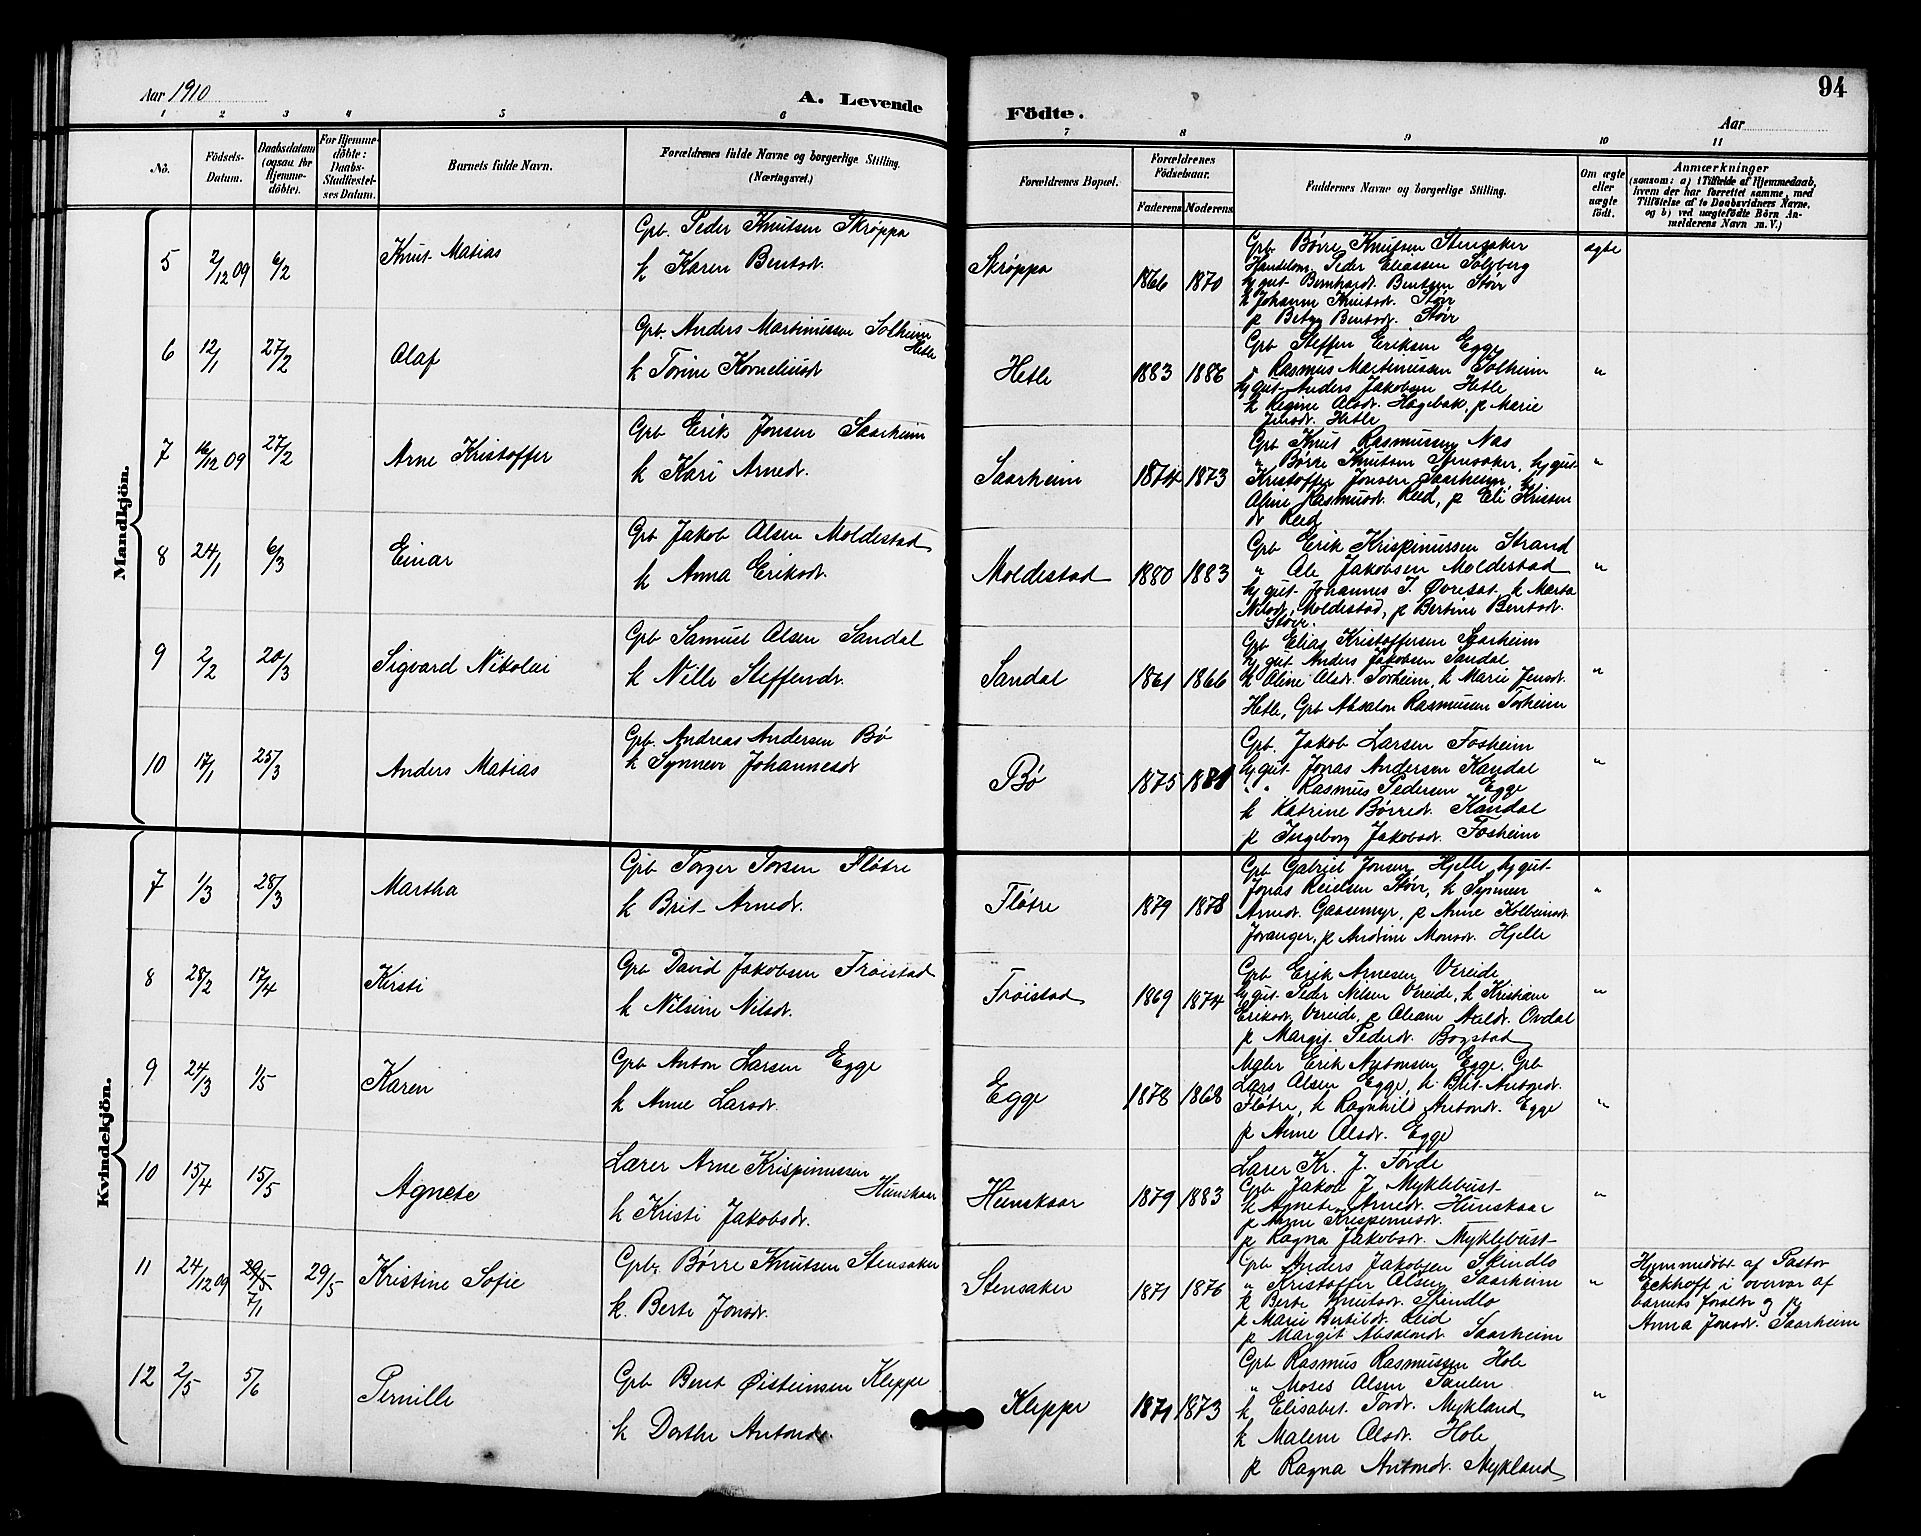 94
Aar 1910
A. Levende
Födte.
Aar
1 2 3 4 5 6 7 8 9 10 11
No.
Födsels-
Datum.
Daabsdatum
(ogsaa for
Hjemme-
döbte).
For Hjemme-
döbte:
Daabs-
Stadfestel-
ses Datum.
Barnets fulde Navn.
Forældrenes fulde Navne og borgerlige Stilling.
(Næringsvei.)
Forældrenes Bopæl.
Forældrenes
Födselsaar.
Faderens
Moderens
Faddernes Navne og borgerlige Stilling.
Om ægte
eller
uægte
födt.
Anmærkninger
(saasom: a) i Tilfælde af Hjemmedaab,
hvem der har forrettet samme, med
Tilföielse af to Daabsvidners Navne,
og b) ved uægtefödte Börn An-
melderens Navn m. V.)
Mandkjön.
5 2/12 09 6/2 Knut Matias
Grb. Peder Knutsen Skrøppa
k Karen Bentsd.
Skrøppa 1866 1870
Grb Børre Knutsen Stensaker
Handelsm. Peder Eliassen Solzberg
hj gut Bernhardt Bentsen Støir
k Johanne Knutsd. Støir
p Betzy Bentsd. Støir
ægte
6 12/1 27/2 Olaf
Grb. Anders Martinussen Solheim
Hetle
k Torine Korneliusd
Hetle 1883 1886
Grb Steffen Eriksen Egge
" Rasmus Martinussen Solheim
hj gut Anders Jakobsen Hetle
k Regine Olsdr. Hagebak, p Marie
Jensdr. Hetle
"
7 16/12 09 27/2 Arne Kristoffer
Grb Erik Jonsen Saarheim
k Kari Arnedr.
Saarheim 1874 1873
Grb Knut Rasmussen Nas
" Børre Knutsen Stensaker, hj gut
Kristoffer Jonsen Saarheim, k
Aline Rasmusdr Reed, p Eli Kristen
dr Reed
"
8 24/1 6/3 Einar
Grb Jakob Olsen Moldestad
k Anna Eriksdr.
Moldestad 1880 1883
Grb Erik Krispinussen Strand
" Ole Jakobsen Moldestad
hj gut Johannes J. Øvreset k Marta
Nilsdr. Moldestad, p Bertine Bentsdr.
Støir.
"
9 2/2 20/3 Sigvard Nikolai
Grb Samuel Olsen Sandal
k Nille Steffensdr.
Sandal 1861 1866
Grb Elias Kristoffersen Saarheim
hj gut Anders Jakobsen Sandal
k Aline Olsdr. Torheim, k Marie Jensdr.
Hetle, Grb Absalon Rasmussen Torheim
"
10 17/1 25/3 Anders Matias
Grb. Andreas Andersen Bø
k Synneve Johannesdr
Bø 1875 1881
Grb. Jakob Larsen Fosheim
hj gut Jonas Andersen Kandal
" " Rasmus Pedersen Egge
k Katrine Børred. Kandal
p Ingeborg Jakobsdr. Fosheim
"
Kvindekjön.
7 1/3 28/3 Martha
Grb Torger Torsen Fløtre
k Brit Arnedr.
Fløtre 1879 1878
Grb Gabriel Jonsen Hjelle hj gut
Jonas Reielsen Støir, k Synneve
Arnedr. Gaasemyr, p Anne Kolbeinsdr.
Joranger, p Andrine Monsdr. Hjelle
"
8 28/2 17/4 Kirsti
Grb David Jakobsen Frøistad
k Nilsine Nilsdr.
Frøistad 1869 1874
Grb Erik Arnesen Vereide
hj gut Peder Nilsen Vereide, k Kristiane
Eriksdr Vereide, p Oliane Ananiasdr. Ordal
p Margit Pedersdr Bogstad
"
9 24/3 1/5 Karen
Grb Anton Larsen Egge
k Anne Larsdr.
Egge 1878 1868
Maler Erik Antonsen Egge, Grb
Lars Olsen Egge, k Brit Antondr.
Fløtre, k Ragnhild Antondr. Egge
p Anne Olsdr. Egge
"
10 15/4 15/5 Agnete
Lærer Arne Krispinussen
Hunskaar
k Kristi Jakobsdr.
Hunskaar 1879 1883
Lærer Kr. J. Førde
Grb Jakob J. Myklebust
k Agnete Arnedr. Hunskaar
p Anne Krispinusdr.
p Ragna Jakobsdr. Myklebust
"
11 24/12 09 29/5 7/1 29/5 Kristine Sofie
Grb. Børre Knutsen Stensaker
k. Berte Jonsdr.
Stensaker 1871 1876
Grb Anders Jakobsen Skindlo
" Kristoffer Olsen Saarheim
k Berte Knutsdr. Skindlo
p Marie Bertildr. Reid
p Margit Absalondr. Saarheim
"
Hjemmedøbt af Pastor
Eckhoff i overvær af
barnets foreldr og k
Anna Jonsdr. Saarheim
12 2/5 5/6 Pernille
Grb Bent Øisteinsen Kleppe
k Dorthe Antonds.
Kleppe 1871 1873
Grb Rasmus Rasmussen Hole
" Moses Olsen Paulen
k Elisabet Tordr. Mykland
k Malene Olsdr. Hole
p Ragna Antondr. Mykland
"